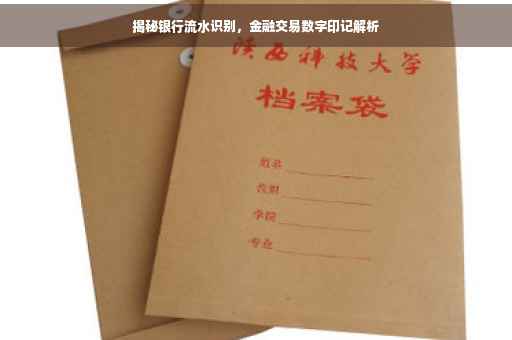 揭秘银行流水识别，金融交易数字印记解析
陕西科技大学
档案袋
姓名
学院
专业